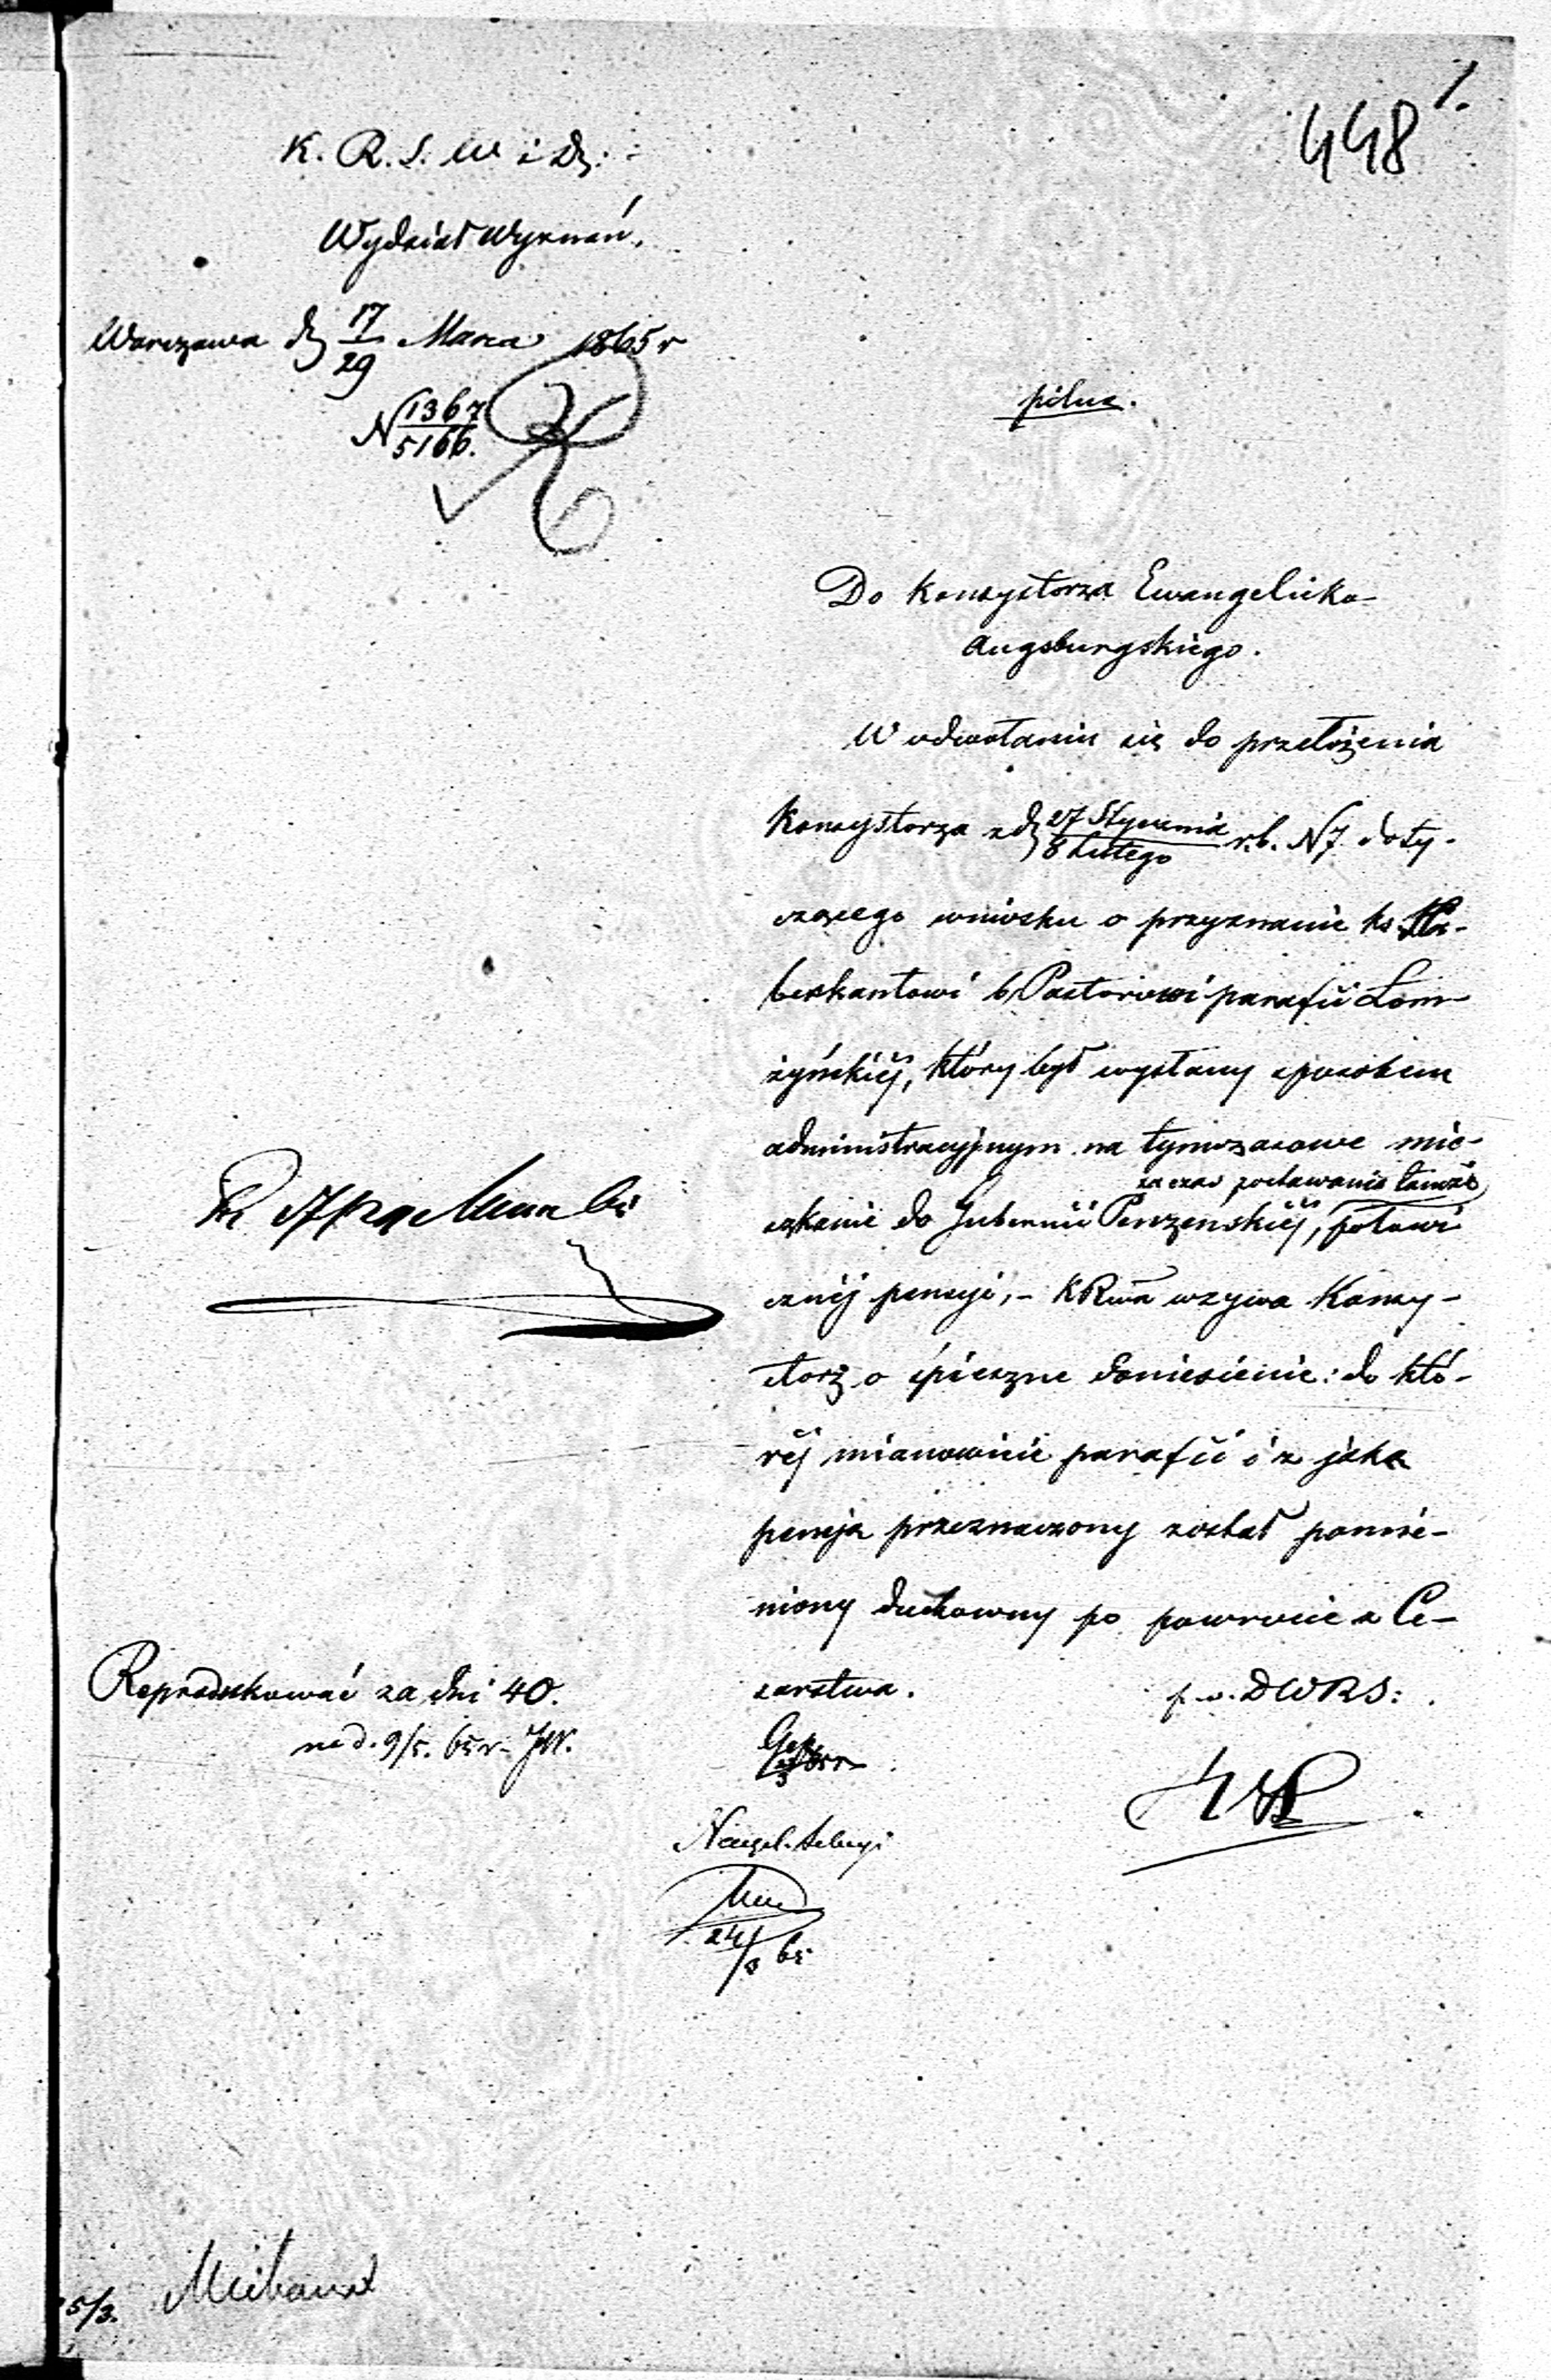 448 1.
K. R. S. W i D.
Wydział Wyznań.
Warszawa d. 17/29 Marca 1865 r
N 1367/5166.
pilne.
Do Konsystorza Ewangelicko-
Augsburgskiego.
W odwołaniu się do przełożenia
Konsystorza z d. 27 Stycznia/8 Lutego r.b. N 7 doty-
czącego wniosku o przyznanie ks.
berkantowi b. Pastorowi parafii Łom-
żyńskiéj, który był wysłany sposobem
administracyjnym na tymczasowe mie-
za czas zostawania tamże
szkanie do Gubernii Penzeńskiéj, połowi
cznéj pensyi, - KRwa wzywa Konsy-
storz o śpieszne doniesienie: do któ-
réj mianowicie parafii i z jaką
pensją przeznaczony został pomie-
niony duchowny po powrocie z Ce-
sarstwa.
p. o. DWRS:
Reprodukować za dni 40.
na d. 9/5. 65 r. JW.
Naczel. Sekcyi
24/3 65
5/3.